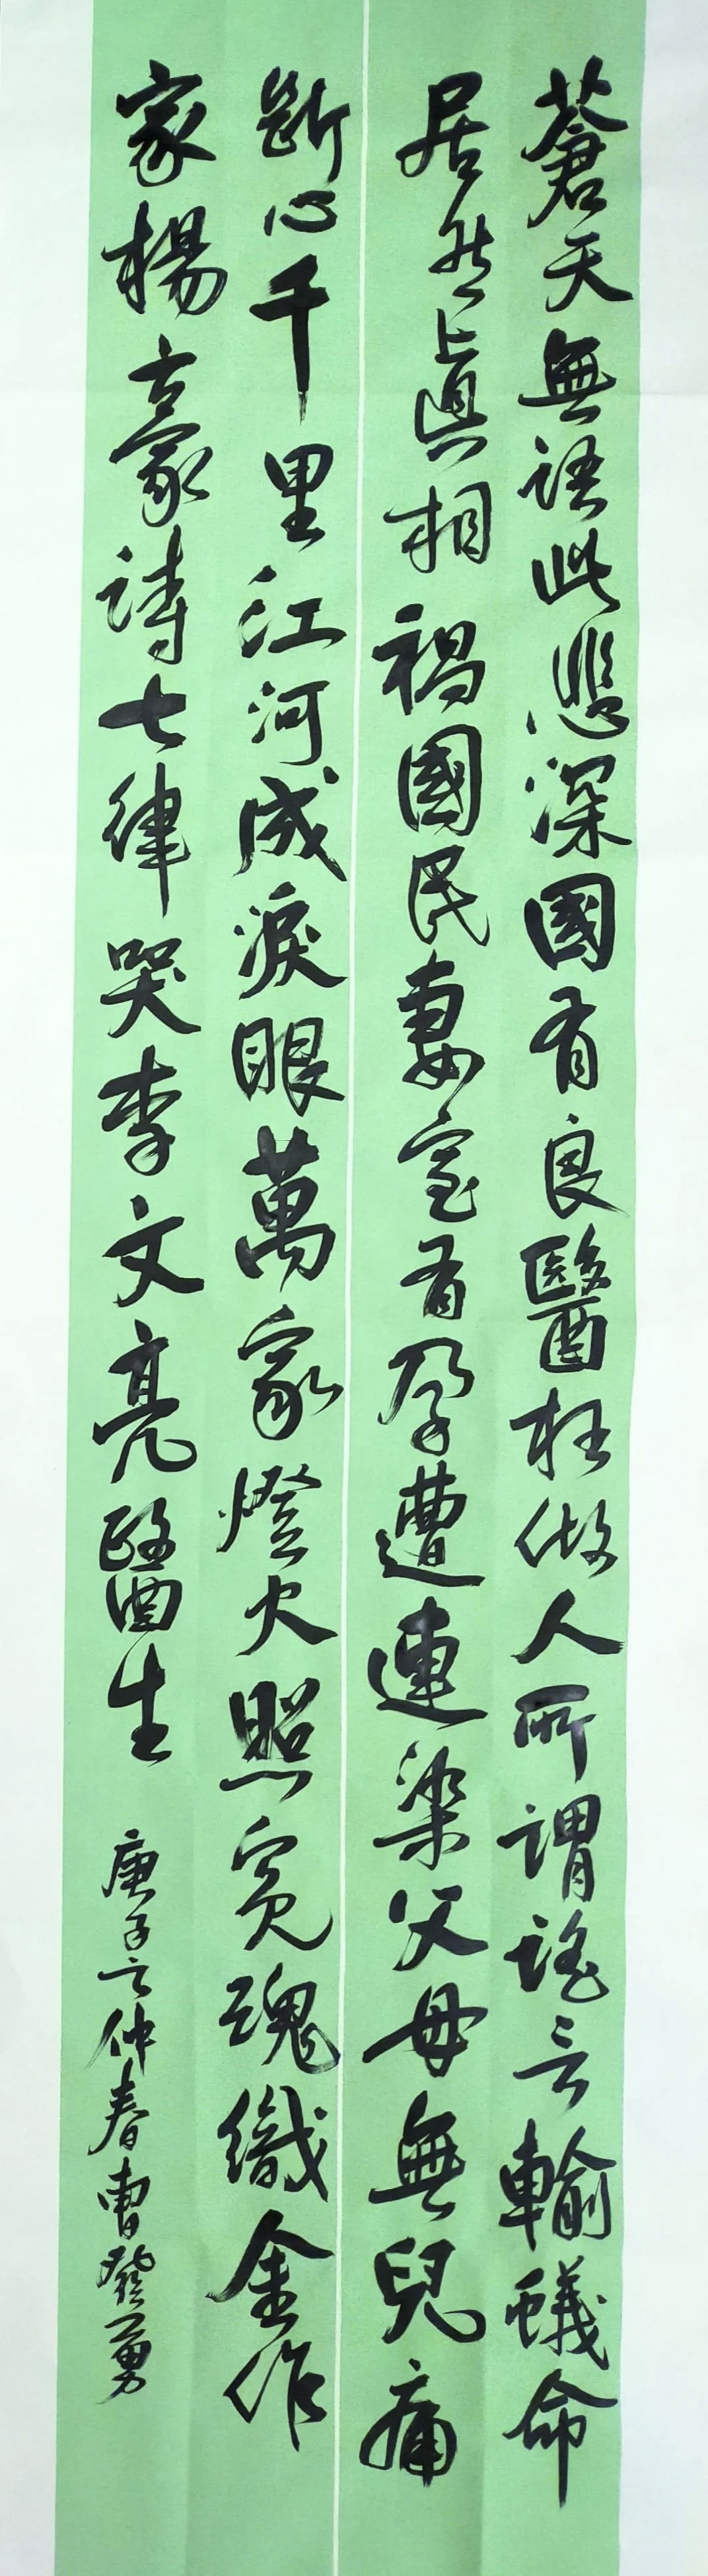 蒼天無語此悲深國有良醫枉做人所謂謠言輸蟻命
居然眞相禍國民妻室有孕遭連染父母無兒痛
斷心千里江河成淚眼萬家燈火照冤魂織金作
家楊豪詩七律哭李文亮醫生
庚子之仲春曹發勇